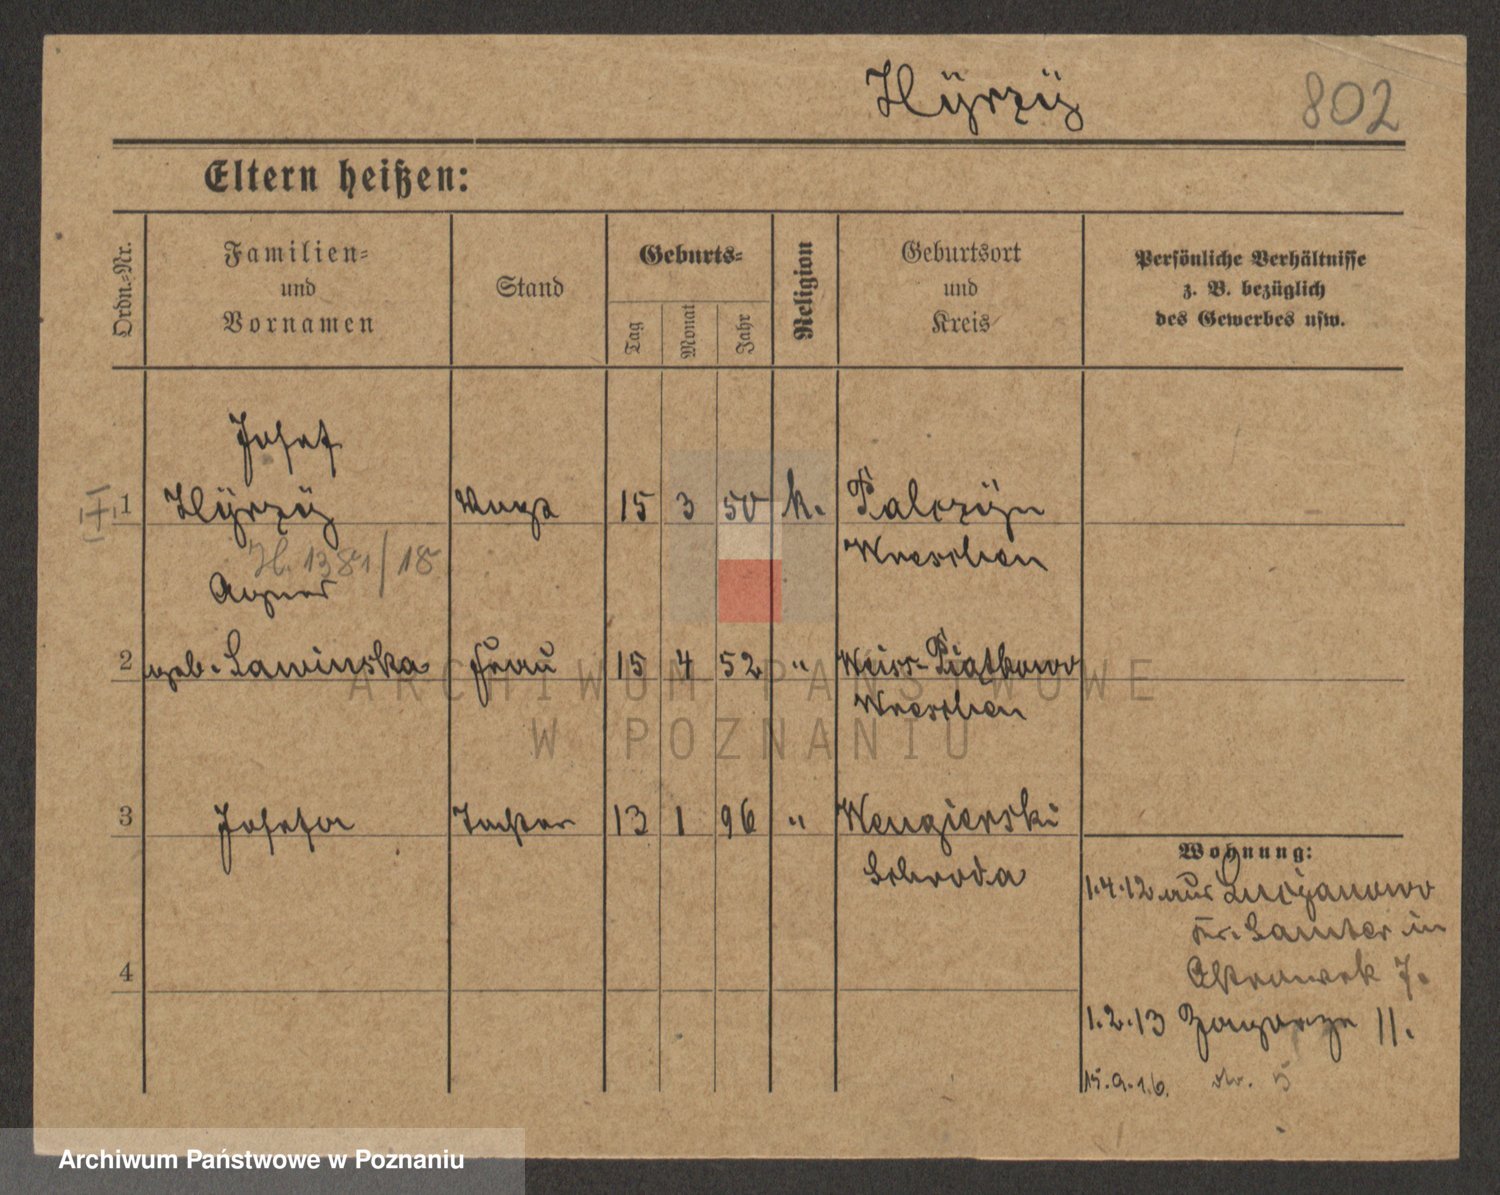 Hÿrzÿ 802
Eltern heißen:
Ordn.-Nr.
Familien-
und
Vornamen
Stand
Geburts-
Tag
Monat
Jahr
Religion
Geburtsort
und
Kreis
Persönliche Verhältnisse
z. B. bezüglich
des Gewerbes usw.
Josef
1 Hÿrzÿ Vogt 15 3 50 k. Palczÿn
H. 1381/18 Wreschen
Agnes
2 geb. Lawinska Frau 15 4 52 " Weiss-Piątkowo
Wreschen
3 Josefa Tochter 13 1 96 " Wengierski
Schroda
Wohnung:
1.4.12 aus Lucÿanowo
Kr. Samter in
Ostrowek 7.
1.2.13 Zawade 11.
15.9.16. Nr. 5
4
ARCHIWUM PAŃSTWOWE
W POZNANIU
Archiwum Państwowe w Poznaniu